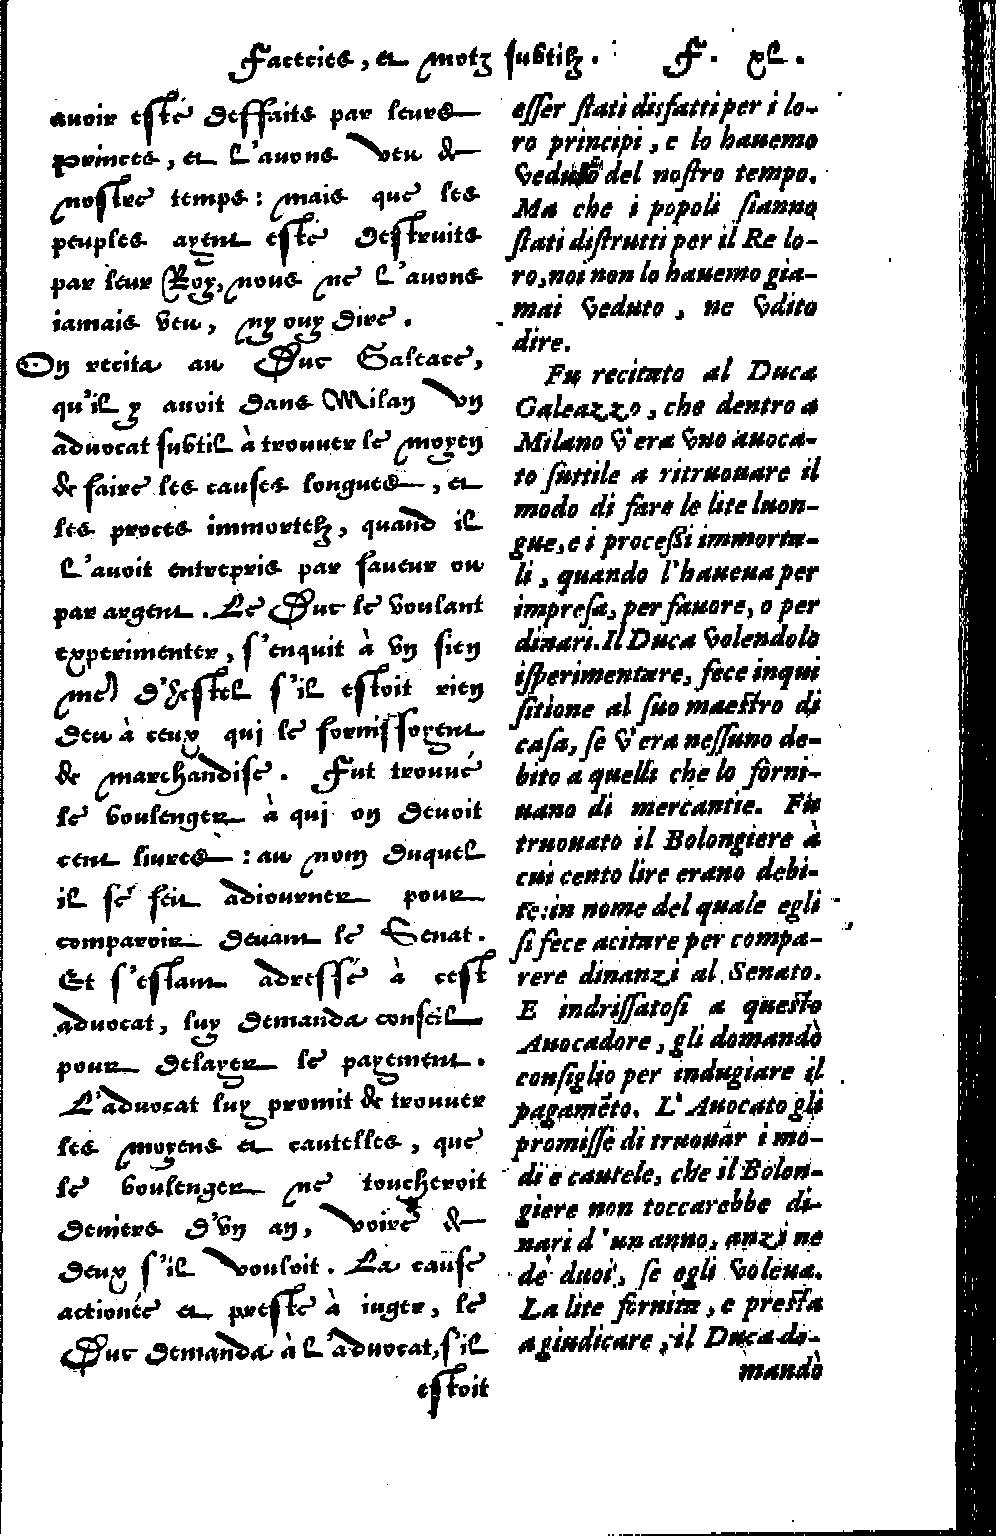 Facecies, et motz subtilz. F. xl.
auoir esté deffaits par leurs
princes, et l'auons veu de
nostre temps: mais que les
peuples ayent esté destruits
par leur Roy, nous ne l'auons
iamais veu, ny ouy dire.
On recita au Duc Galeace,
qu'il y auoit dans Milan vn
aduocat subtil à trouuer le moyen
de faire les causes longues, et
les proces immortelz, quand il
l'auoit entrepris par faueur ou
par argent. Le Duc le voulant
experimenter, s'enquit à vn sien
me) d'hostel s'il estoit rien
deu à ceux qui le fornissoyent
de marchandise. Fut trouué
le boulenger à qui on deuoit
cent liures: au nom duquel
il se feit adiourner pour
comparoir deuant le Senat.
Et s'estant adressé à cest
aduocat, luy demanda conseil
pour delayer le payement.
L'aduocat luy promit de trouuer
les moyens et cautelles, que
le boulenger ne toucheroit
deniers d'vn an, voire de
deux s'il vouloit. La cause
actionée et preste à iuger, le
Duc demanda à l'aduocat, s'il
estoit
esser stati disfatti per i lo-
ro principi, e lo hauemo
veduto del nostro tempo.
Ma che i popoli sianno
stati distrutti per il Re lo-
ro, noi non lo hauemo gia-
mai veduto, ne vdito
dire.
Fu recitato al Duca
Galeazzo, che dentro a
Milano v'era vno auoca-
to suttile a ritruouare il
modo di fare le lite luon-
gue, e i processi immorta-
li, quando l'haueua per
impresa, per fauore, o per
dinari. Il Duca volendolo
isperimentare, fece inqui
sitione al suo maestro di
casa, se v'era nessuno de-
bito a quelli che lo forni-
uano di mercantie. Fu
truouato il Bolongiere à
cui cento lire erano debi-
te: in nome del quale egli
si fece acitare per compa-
rere dinanzi al Senato.
E indrissatosi a questo
Auocadore, gli domandò
consiglio per indugiare il
pagamẽto. L'Auocato gli
promisse di truouar i mo-
di e cautele, che il Bolon-
giere non toccarebbe di-
nari d'un anno, anzi ne
de duoi, se egli voleua.
La lite fornita, e presta
a giudicare, il Duca di-
mandò